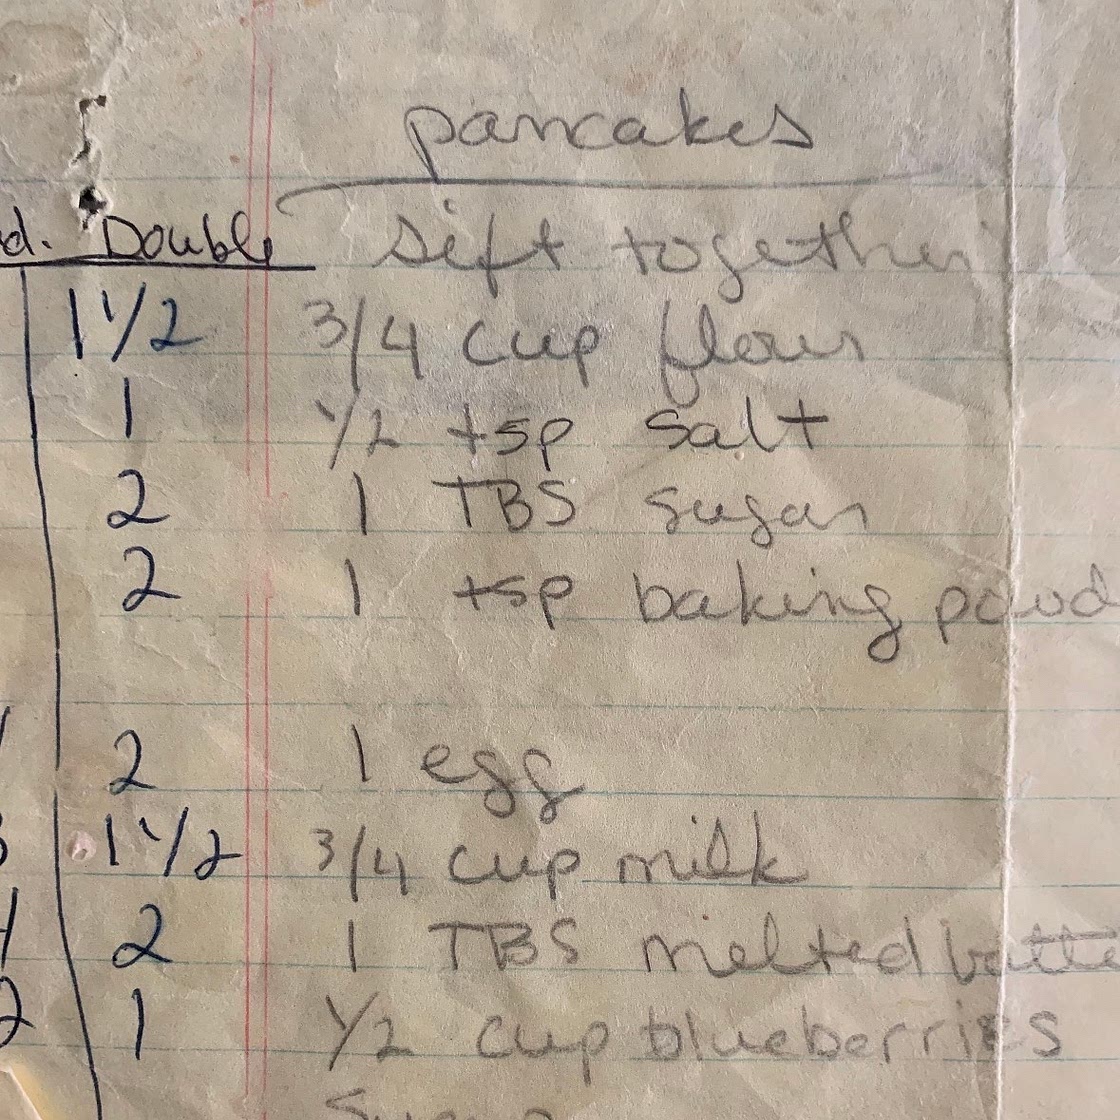 pancakes
d. Double sift together
1 1/2 3/4 cup flour
1 1/2 tsp salt
2 1 TBS sugar
2 1 tsp baking powd
2 1 egg
3 1 1/2 3/4 cup milk
2 1 TBS melted butte
2 1 1/2 cup blueberries